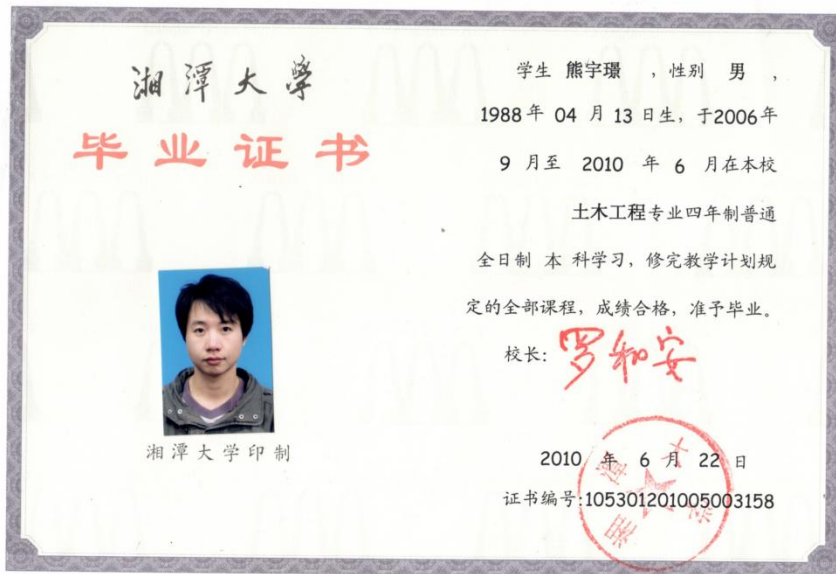 湘潭大學
毕业证书
湘潭大学印制
学生 熊宇璟 ，性别 男 ，
1988年 04 月 13 日生，于2006年
9 月至 2010 年 6 月在本校
土木工程专业四年制普通
全日制 本 科学习，修完教学计划规
定的全部课程，成绩合格，准予毕业。
校长：罗和安
2010 年 6 月 22 日
证书编号:105301201005003158
湘潭大学